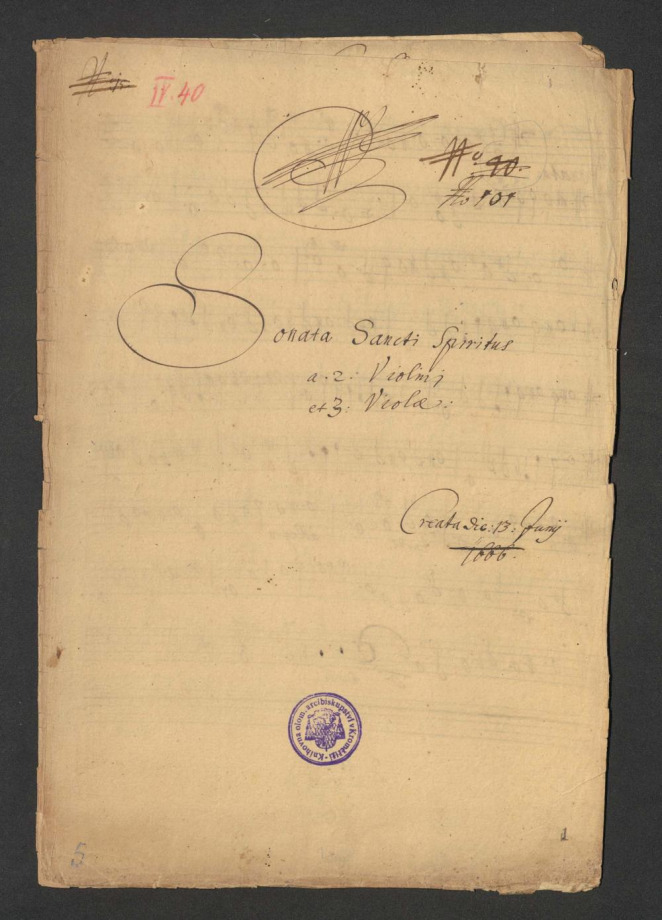 IV. 40
No 90.
No 101
Sonata Sancti Spiritus
a. 2: Violini
et 3: Violæ:
Creata die: 13: Junij
1666.
Knihovna olom. arcibiskupství v Kroměříži
5
1